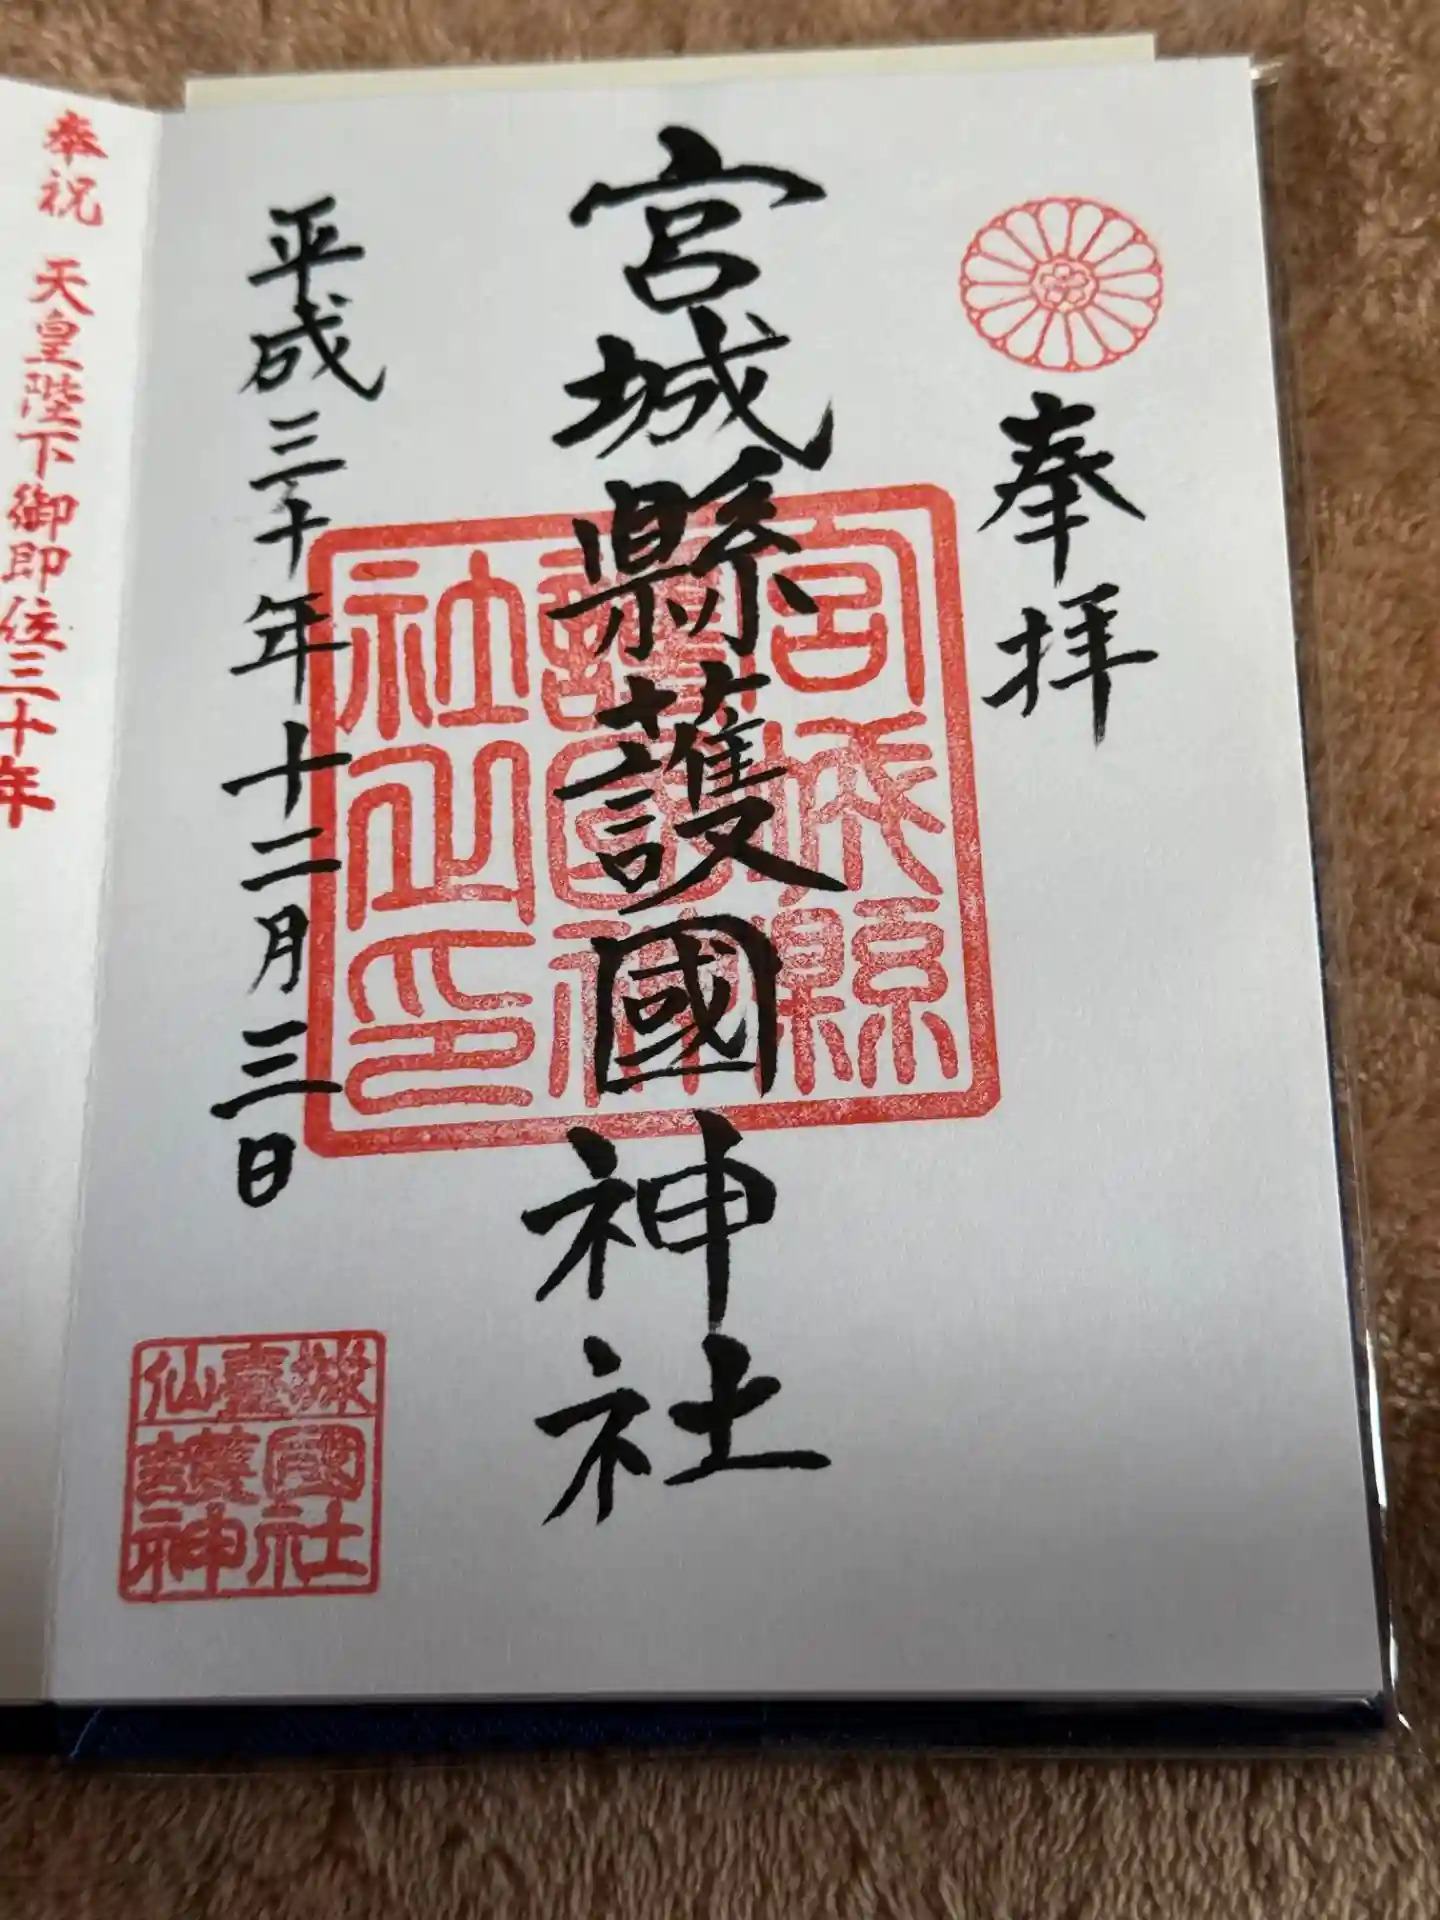 奉拝
宮城縣護國神社
宮城縣
護國神
社之印
平成三十年十二月三日
仙臺城
護國
神社
奉祝 天皇陛下御即位三十年